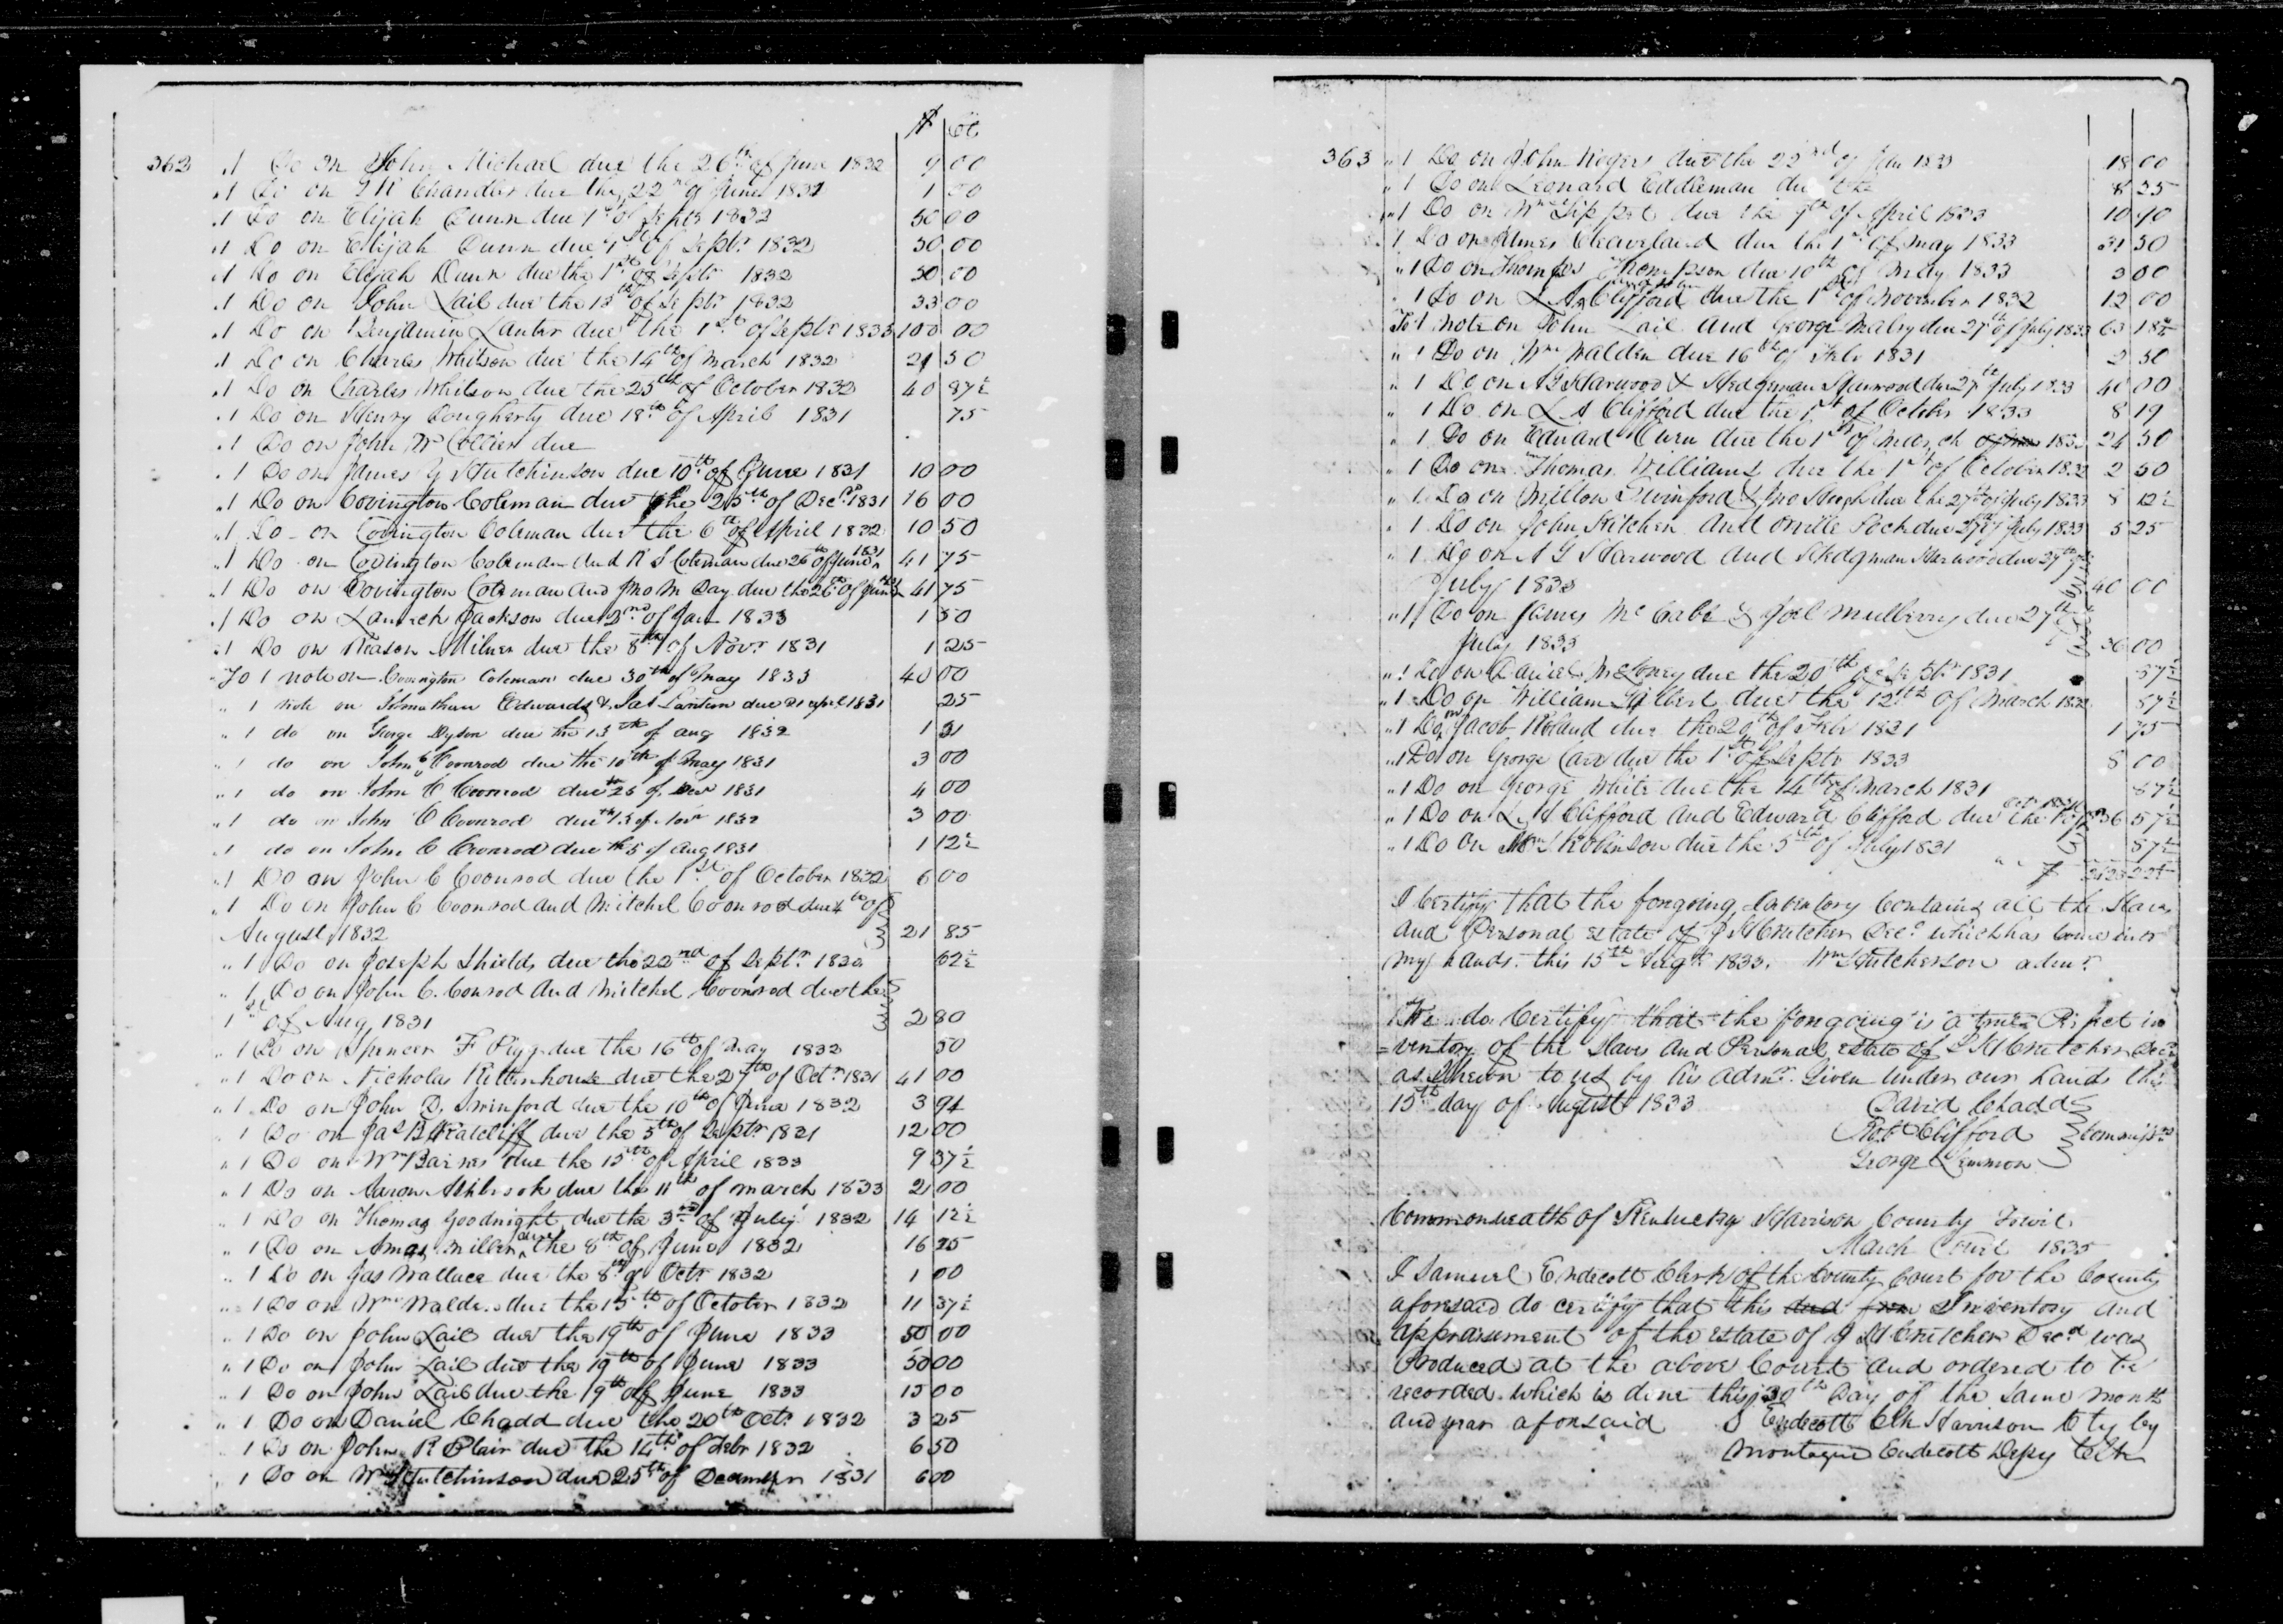 $ | Cts
362 " 1 Do on John Michael due the 26th of June 1832 9 00
" 1 Do on Chandler due the 22nd of June 1832 1 00
" 1 Do on Elijah Dunn due 1st of Septr 1832 50 00
" 1 Do on Elijah Dunn due 1st of Septr 1832 50 00
" 1 Do on Elijah Dunn due the 1st of Septr 1832 50 00
" 1 Do on John Lail due the 15th of Septr 1832 33 00
" 1 Do on Benjamin Lanter due the 1st of Septr 1833 100 00
" 1 Do on Charles Whitson due the 14th of March 1832 21 50
" 1 Do on Charles Whitson due the 25th of October 1832 40 87½
" 1 Do on Henry Dougherty due 18th of April 1831 75
" 1 Do on John W Collier due
" 1 Do on James G Hutchinson due 10th of June 1831 10 00
" 1 Do on Covington Coleman due the 25th of Decr 1831 16 00
" 1 Do on Covington Coleman due the 6th of April 1832 10 50
" 1 Do on Covington Coleman and R S Coleman due 26th of June 1831 41 75
" 1 Do on Covington Coleman and Jno M Day due the 26th of June 41 75
" 1 Do on Jackson due 2nd of Jan 1833 1 50
" 1 Do on Reason Milner due the 8th of Novr 1831 1 25
To 1 note on Covington Coleman due 30th of May 1833 40 00
" 1 note on Johnathan Edwards & Jas Lantern due 21 april 1831 25
" 1 do on George Dyson due the 13th of aug 1832 1 31
" 1 do on John C Coonrod due the 10th of May 1831 3 00
" 1 do on John C Coonrod due 25 of Decr 1831 4 00
" 1 do on John C Coonrod due th 15 of Novr 1832 3 00
" 1 do on John C Coonrod due th 5 of Aug 1831 1 12½
" 1 Do on John C Coonrod due the 1st of October 1832 6 00
" 1 Do on John C Coonrod and Mitchel Coonrod due 4th of
August 1832 21 85
" 1 Do on Joseph Shields due the 22nd of Septr 1830 62½
" 1 Do on John C. Conrod and Mitchel Coonrod due the
1st of Aug 1831 2 80
" 1 Do on Spencer F Pigg due the 16th of May 1832 50
" 1 Do on Nicholas Rittenhouse due the 27th of Octr 1831 41 00
" 1 Do on John D. Swinford due the 10th of June 1832 3 94
" 1 Do on Jas B Ratcliff due the 5th of Septr 1831 12 00
" 1 Do on Wm Barnes due the 15th of April 1833 9 37½
" 1 Do on Aaron Ashbrook due the 11th of march 1833 2 00
" 1 Do on Thomas Goodnight due the 3rd of July 1832 14 12½
" 1 Do on Amas Miller due the 8th of June 1832 16 25
" 1 Do on Jas Wallace due the 8th of Octr 1832 1 00
" 1 Do on Wm Walden due the 15th of October 1832 11 37½
" 1 Do on John Lail due the 19th of June 1833 50 00
" 1 Do on John Lail due the 19th of June 1833 50 00
" 1 Do on John Lail due the 19th of June 1833 15 00
" 1 Do on Daniel Chadd due the 20th Octr 1832 3 25
" 1 Do on John R Blair due the 14th of Febr 1832 6 50
" 1 Do on Wm Hutchinson due 25th of December 1831 6 00
363 " 1 Do on John Rogers due the 22nd of Jan 1833 18 00
" 1 Do on Leonard Eddleman due the 8 35
" 1 Do on Wm due the 9th of April 1833 10 40
" 1 Do on James Cleaveland due the 1st of may 1833 31 50
" 1 Do on Thomas Thompson due 10th of May 1833 3 00
" 1 Do on L A Clifford due the 1st of November 1832 12 00
To 1 note on John Lail and George due 27th of July 1833 63 18¾
" 1 Do on Wm Walden due 16th of Febr 1831 2 50
" 1 Do on A G Harwood & Hedgman Harwood due 27th July 1833 40 00
" 1 Do on L A Clifford due the 1st of October 1833 8 19
" 1 Do on Edward Owen due the 1st of March 1833 24 50
" 1 Do on Thomas Williams due the 1st of October 1832 2 50
" 1 Do on Milton Swinford & Jno due the 27th of July 1833 8 12½
" 1 Do on John Kitchen and due 27th of July 1833 5 25
" 1 Do on A G Harwood and Hedgman Harwood due 27th of
July 1833 40 00
" 1 Do on James McCabe & Joel Mulberry due 27th
July 1833 36 00
" 1 Do on Daniel McLoney due the 20th of Septr 1831 87½
" 1 Do on William Gilbert due the 12th of March 1832 87½
" 1 Do on Jacob Roland due the 20th of Febr 1831 1 75
" 1 Do on George Carr due the 1st of Septr 1833 8 00
" 1 Do on George White due the 14th of March 1831 87½
" 1 Do on L A Clifford and Edward Clifford due the 36 57½
" 1 Do on Robinson due the 5th of July 1831 57½
I Certify that the forgoing Inventory Contains all the Slaves
and Personal estate of Crutcher Decd which has come into
my hands. this 15th Augst 1833. Wm Hutcherson admr.
We do Certify that the forgoing is a true & Perfect in
=ventory of the Slaves and Personal estate of Crutcher Decd
as Shewn to us by his admr. Given under our hands this
15th day of August 1833 David Chadd
Robt Clifford Commissrs
George Lemmon
Commonwealth of Kentucky Harrison County Towit
March Court 1835
I Samuel Endecott Clerk of the County Court for the County
aforesaid do certify that this and Inventory and
appraisment of the estate of Crutcher Decd was
Produced at the above Court and ordered to be
recorded which is done this 30th Day of the same month
and year aforesaid S Endecott Clk Harrison Cty by
Montague Endecott Depy Clk